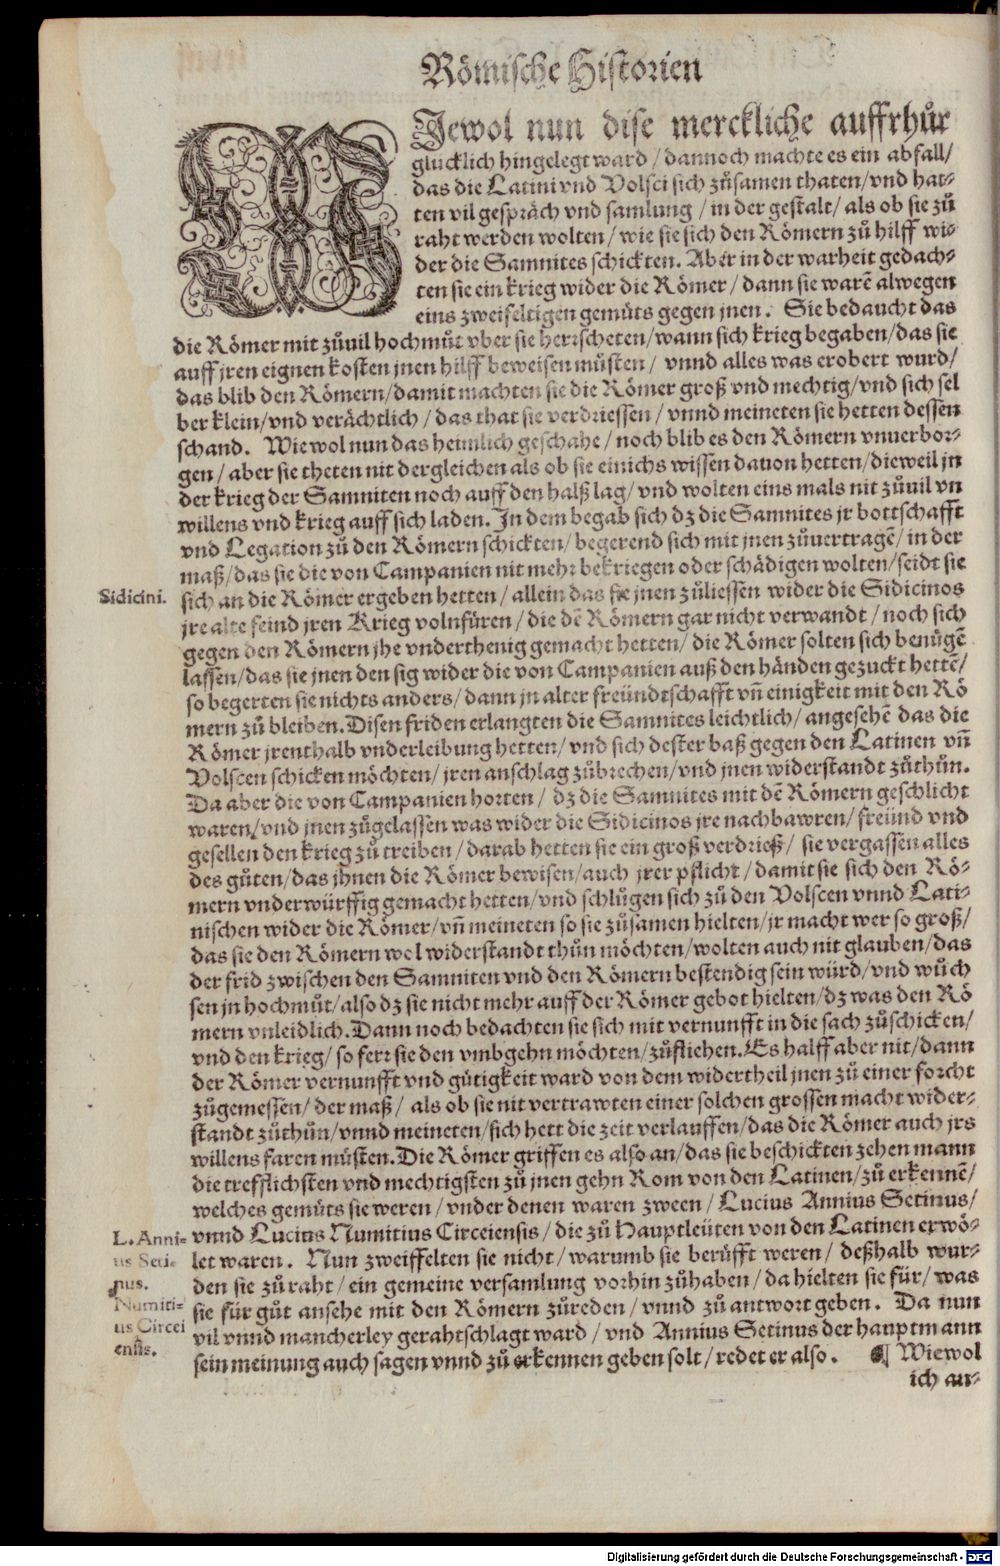 Römische Historien
WJewol nun dise merckliche auffrhůr
glucklich hingelegt ward / dannoch machte es ein abfall /
das die Latini vnd Volsci sich zůsamen thaten / vnd hat-
ten vil gespräch vnd samlung / in der gestalt / als ob sie zů
raht werden wolten / wie sie sich den Römern zů hilff wi-
der die Samnites schickten. Aber in der warheit gedach-
ten sie ein krieg wider die Römer / dann sie warē alwegen
eins zweifeltigen gemüts gegen jnen. Sie bedaucht das
die Römer mit zůuil hochmůt vber sie herrscheten / wann sich krieg begaben / das sie
auff jren eignen kosten jnen hilff beweisen müsten / vnnd alles was erobert wurd /
das blib den Römern / damit machten sie die Römer groß vnd mechtig / vnd sich sel
ber klein / vnd verächtlich / das that sie verdriessen / vnnd meineten sie hetten dessen
schand. Wiewol nun das heimlich geschahe / noch blib es den Römern vnuerbor-
gen / aber sie theten nit dergleichen als ob sie einichs wissen dauon hetten / dieweil jn
der krieg der Samniten noch auff den halß lag / vnd wolten eins mals nit zůuil vn
willens vnd krieg auff sich laden. In dem begab sich dz die Samnites jr bottschafft
vnd Legation zů den Römern schickten / begerend sich mit jnen zůuertragē / in der
maß / das sie die von Campanien nit mehr bekriegen oder schädigen wolten / seidt sie
Sidicini.
sich an die Römer ergeben hetten / allein das sie jnen zůliessen wider die Sidicinos
jre alte feind jren Krieg volnfüren / die dē Römern gar nicht verwandt / noch sich
gegen den Römern jhe vnderthenig gemacht hetten / die Römer solten sich benůgē
lassen / das sie jnen den sig wider die von Campanien auß den händen gezuckt hettē /
so begerten sie nichts anders / dann jn alter freündtschafft vn̄ einigkeit mit den Rö
mern zů bleiben. Disen friden erlangten die Samnites leichtlich / angesehē das die
Römer jrenthalb vnderleibung hetten / vnd sich dester baß gegen den Latinen vn̄
Volscen schicken möchten / jren anschlag zůbrechen / vnd jnen widerstandt zůthůn.
Da aber die von Campanien horten / dz die Samnites mit dē Römern geschlicht
waren / vnd jnen zůgelassen was wider die Sidicinos jre nachbawren / freünd vnd
gesellen den krieg zů treiben / darab hetten sie ein groß verdrieß / sie vergassen alles
des gůten / das jhnen die Römer bewisen / auch jrer pflicht / damit sie sich den Rö-
mern vnderwürffig gemacht hetten / vnd schlůgen sich zů den Volscen vnnd Lati-
nischen wider die Römer / vn̄ meineten so sie zůsamen hielten / jr macht wer so groß /
das sie den Römern wol widerstandt thůn möchten / wolten auch nit glauben / das
der frid zwischen den Samniten vnd den Römern bestendig sein würd / vnd wůch
sen jn hochmůt / also dz sie nicht mehr auff der Römer gebot hielten / dz was den Rö
mern vnleidlich. Dann noch bedachten sie sich mit vernunfft in die sach zůschicken /
vnd den krieg / so ferr sie den vmbgehn möchten / zůfliehen. Es halff aber nit / dann
der Römer vernunfft vnd gütigkeit ward von dem widertheil jnen zů einer forcht
zůgemessen / der maß / als ob sie nit vertrawten einer solchen grossen macht wider-
standt zůthůn / vnnd meineten / sich hett die zeit verlauffen / das die Römer auch jrs
willens faren müsten. Die Römer griffen es also an / das sie beschickten zehen mann
die trefflichsten vnd mechtigsten zů jnen gehn Rom von den Latinen / zů erkennē /
welches gemüts sie weren / vnder denen waren zween / Lucius Annius Setinus /
L. Anni-
us Seti-
nus.
Numiti-
us Circei
ensis.
vnnd Lucius Numitius Circeiensis / die zů Hauptleüten von den Latinen erwö-
let waren. Nun zweiffelten sie nicht / warumb sie berůfft weren / deßhalb wur-
den sie zů raht / ein gemeine versamlung vorhin zůhaben / da hielten sie für / was
sie für gůt ansehe mit den Römern zůreden / vnnd zů antwort geben. Da nun
vil vnnd mancherley gerahtschlagt ward / vnd Annius Setinus der hauptmann
sein meinung auch sagen vnnd zů erkennen geben solt / redet er also. ¶ Wiewol
ich an-
Digitalisierung gefördert durch die Deutsche Forschungsgemeinschaft - DFG